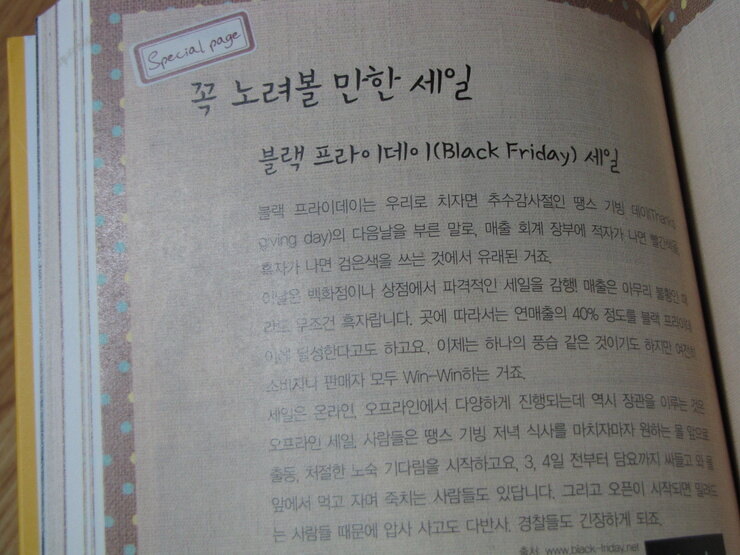 Special page
꼭 노려볼 만한 세일
블랙 프라이데이(Black Friday) 세일
블랙 프라이데이는 우리로 치자면 추수감사절인 땡스 기빙 데이(Thanks
giving day)의 다음날을 부른 말로, 매출 회계 장부에 적자가 나면 빨간색을,
흑자가 나면 검은색을 쓰는 것에서 유래된 거죠.
이날은 백화점이나 상점에서 파격적인 세일을 감행! 매출은 아무리 불황인 때
라도 무조건 흑자랍니다. 곳에 따라서는 연매출의 40% 정도를 블랙 프라이데
이에 달성한다고도 하고요. 이제는 하나의 풍습 같은 것이기도 하지만 여전히
소비자나 판매자 모두 Win-Win하는 거죠.
세일은 온라인, 오프라인에서 다양하게 진행되는데 역시 장관을 이루는 것은
오프라인 세일. 사람들은 땡스 기빙 저녁 식사를 마치자마자 원하는 몰 앞으로
출동, 처절한 노숙 기다림을 시작하고요. 3, 4일 전부터 담요까지 싸들고 와 몰
앞에서 먹고 자며 죽치는 사람들도 있답니다. 그리고 오픈이 시작되면 밀려드
는 사람들 때문에 압사 사고도 다반사. 경찰들도 긴장하게 되죠.
출처 www.black-friday.net